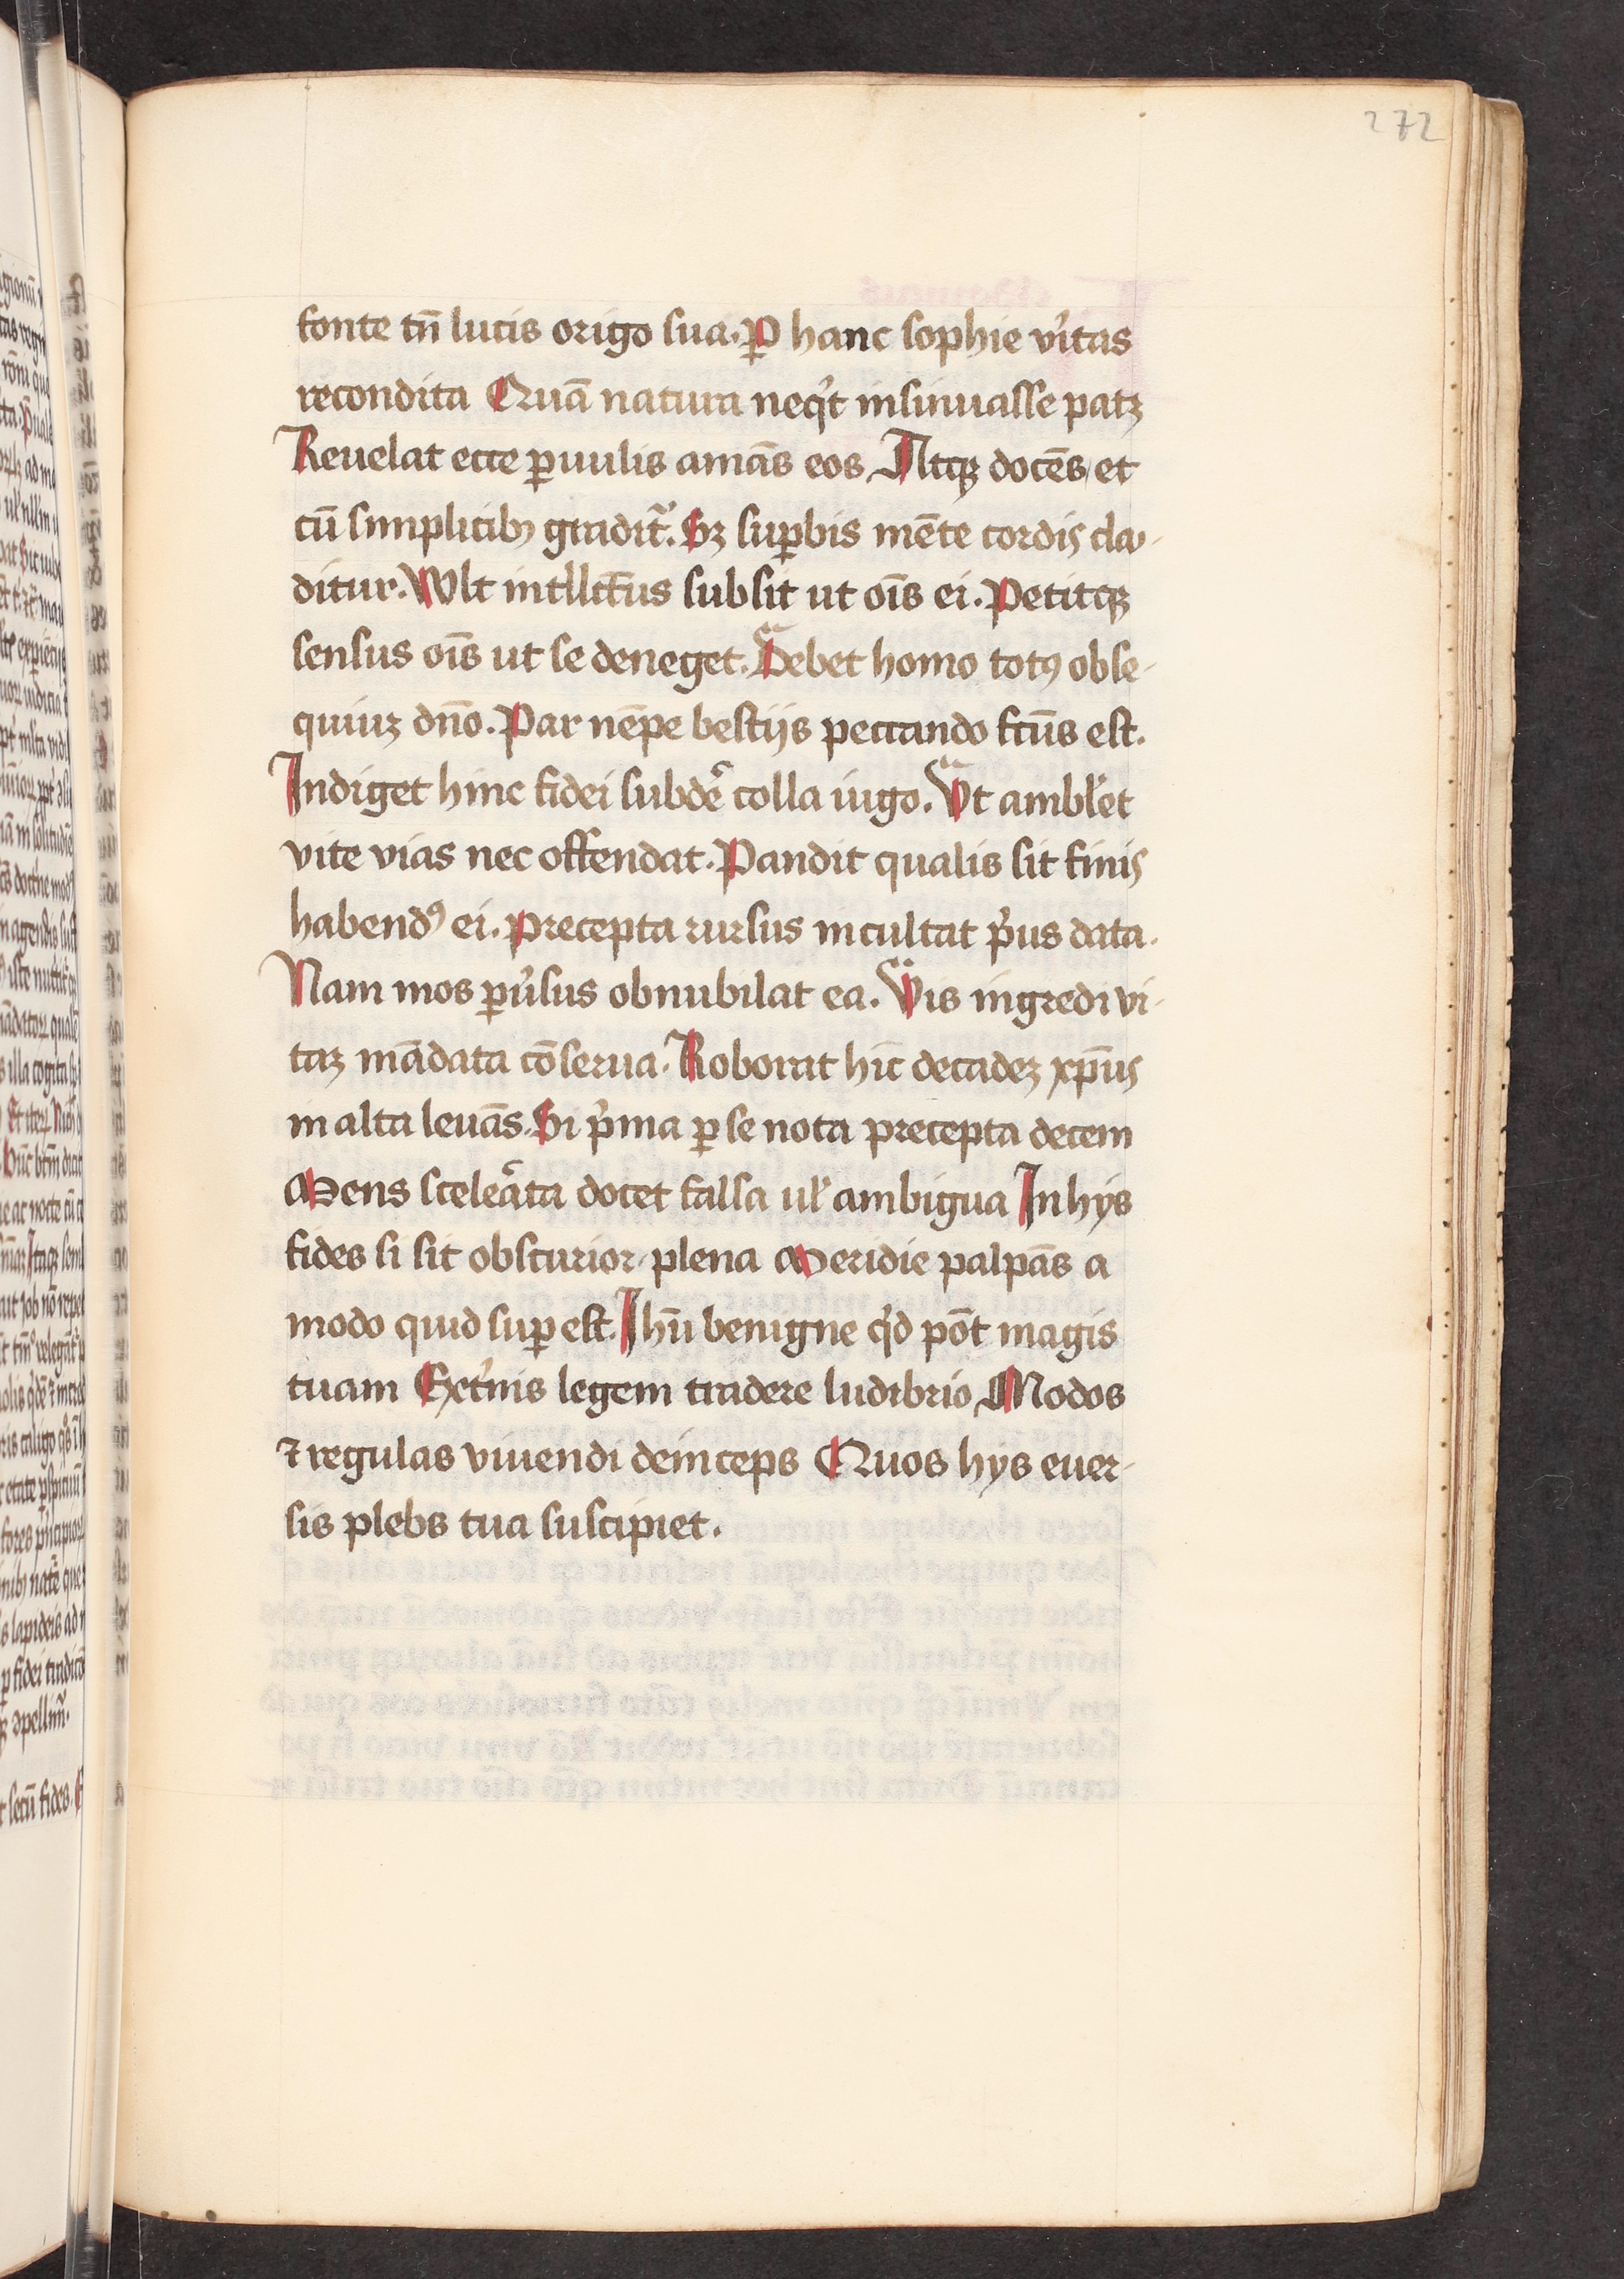 272
fonte tn̄ lucis origo sua. ꝑ hanc sophie vi̓tas
recondita Quā natura neq̓t insinuasse patꝫ
Reuelat ecce ꝑuulis amās eos Atqꝫ docēs et
cū simplicibꝰ gradit᷑. Sꝫ suꝑbis mēte cordis clau-
ditur. Vult intll̄ct̄us subsit ut oīs ei. Petitqꝫ
sensus oīs ut se deneget. Debet homo totꝰ obse-
quiuꝫ dn̄o. Par nēpe bestijs peccando fcūs est.
Indiget hinc fidei subde᷑ colla iugo. Vt ambl̓et
vite vias nec offendat. Pandit qualis sit finis
habendꝰ ei. Precepta rursus inculcat p̓us data.
Nam mos ꝑu̓sus obnubilat ea. Vis ingredi vi-
taꝫ mādata cōserua. Roborat hīc decadeꝫ xp̄us
in alta leuās. Si p̓ma ꝑ se nota precepta decem
Mens scelea᷑ta docet falsa ul̓ ambigua In hys
fides si sit obscurior plena Meridie palpās a
modo quid suꝑ est. Ihū benigne q̓d pōt magis
tuam Ext̓nis legem tradere ludibrio Modos
⁊ regulas viuendi deinceps Quos hys euer-
sis plebs tua suscipiet.